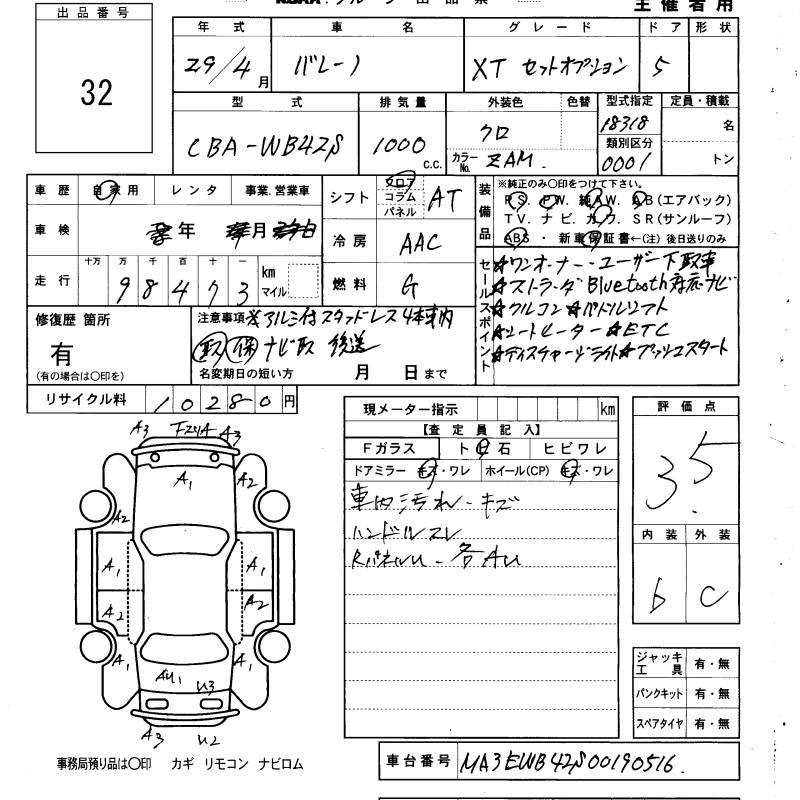 出品番号
32
主催者用
年式 車名 グレード ドア 形状
29/4月 バレーノ XT セットオプション 5
型式 排気量 外装色 色替 型式指定 定員・積載
CBA-WB42S 1000 c.c. クロ 18318 名
カラーNo. ZAM. 類別区分 0001 トン
車歴 自家用 レンタ 事業.営業車
シフト フロア コラム パネル AT
車検 年 月
冷房 AAC
走行 十万 万 千 百 十 一 km マイル
98473
燃料 G
装備品
※純正のみ○印をつけて下さい。
PS. PW. 純AW. AB(エアバック)
TV. ナビ. カワ. SR(サンルーフ)
ABS ・ 新車保証書←(注) 後日送りのみ
セールスポイント
★ワンオーナー・ユーザー下取車
★ストラーダBluetooth対応ナビ
★クルコン★パドルシフト
★シートヒーター★ETC
★ディスチャージライト★プッシュスタート
修復歴 箇所
有
(有の場合は○印を)
注意事項 ※アルミ付スタッドレス4本車内
取 保 ナビ取 後送
名変期日の短い方 月 日まで
リサイクル料 10280円
現メーター指示 km
【査定員記入】
Fガラス ト 石 ヒビワレ
ドアミラー キズ・ワレ ホイール(CP) キズ・ワレ
車内汚れ・キズ
ハンドルスレ
RパネルU・各AU
評価点
3.5
内装 外装
b C
ジャッキ工具 有・無
パンクキット 有・無
スペアタイヤ 有・無
A3 A3
A1
A2 A2
A1 A1
A2 A2
A1 A1
AU1 U3
A3 U2
事務局預り品は○印 カギ リモコン ナビロム
車台番号 MA3EWB42S00190516.